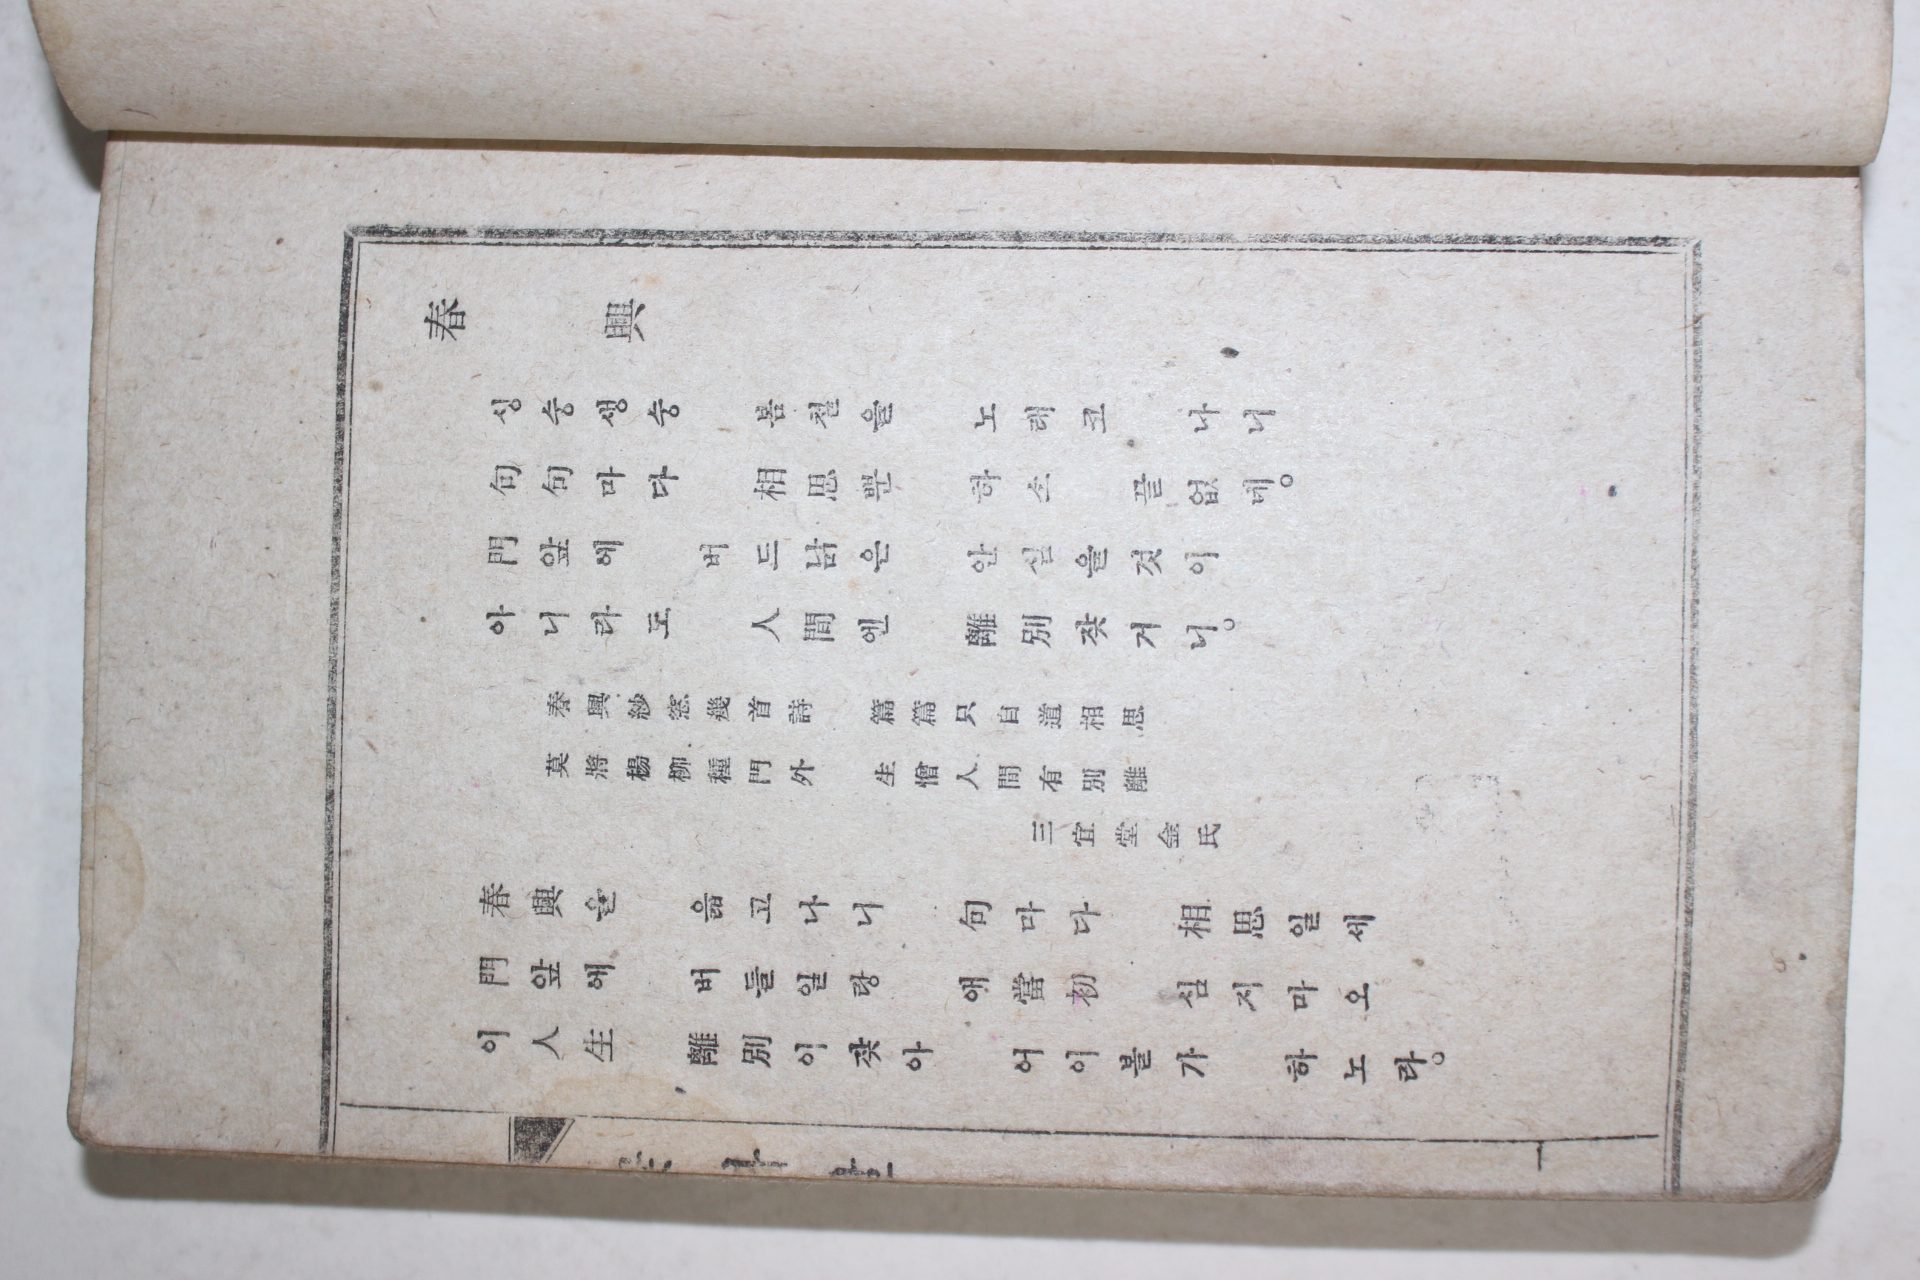 春興
싱숭생숭 봄철을 노래코 나니
句句마다 相思뿐 하소 끝없네。
門앞에 버드낡은 안심을것이
아니라도 人間엔 離別잦거니。
春興紗窓幾首詩 篇篇只自道相思
莫將楊柳種門外 生憎人間有別離
三宜堂金氏
春興을 읊고나니 句마다 相思일세
門앞에 버들일랑 애當初 심지마오
이人生 離別이잦아 어이볼가 하노라。
一